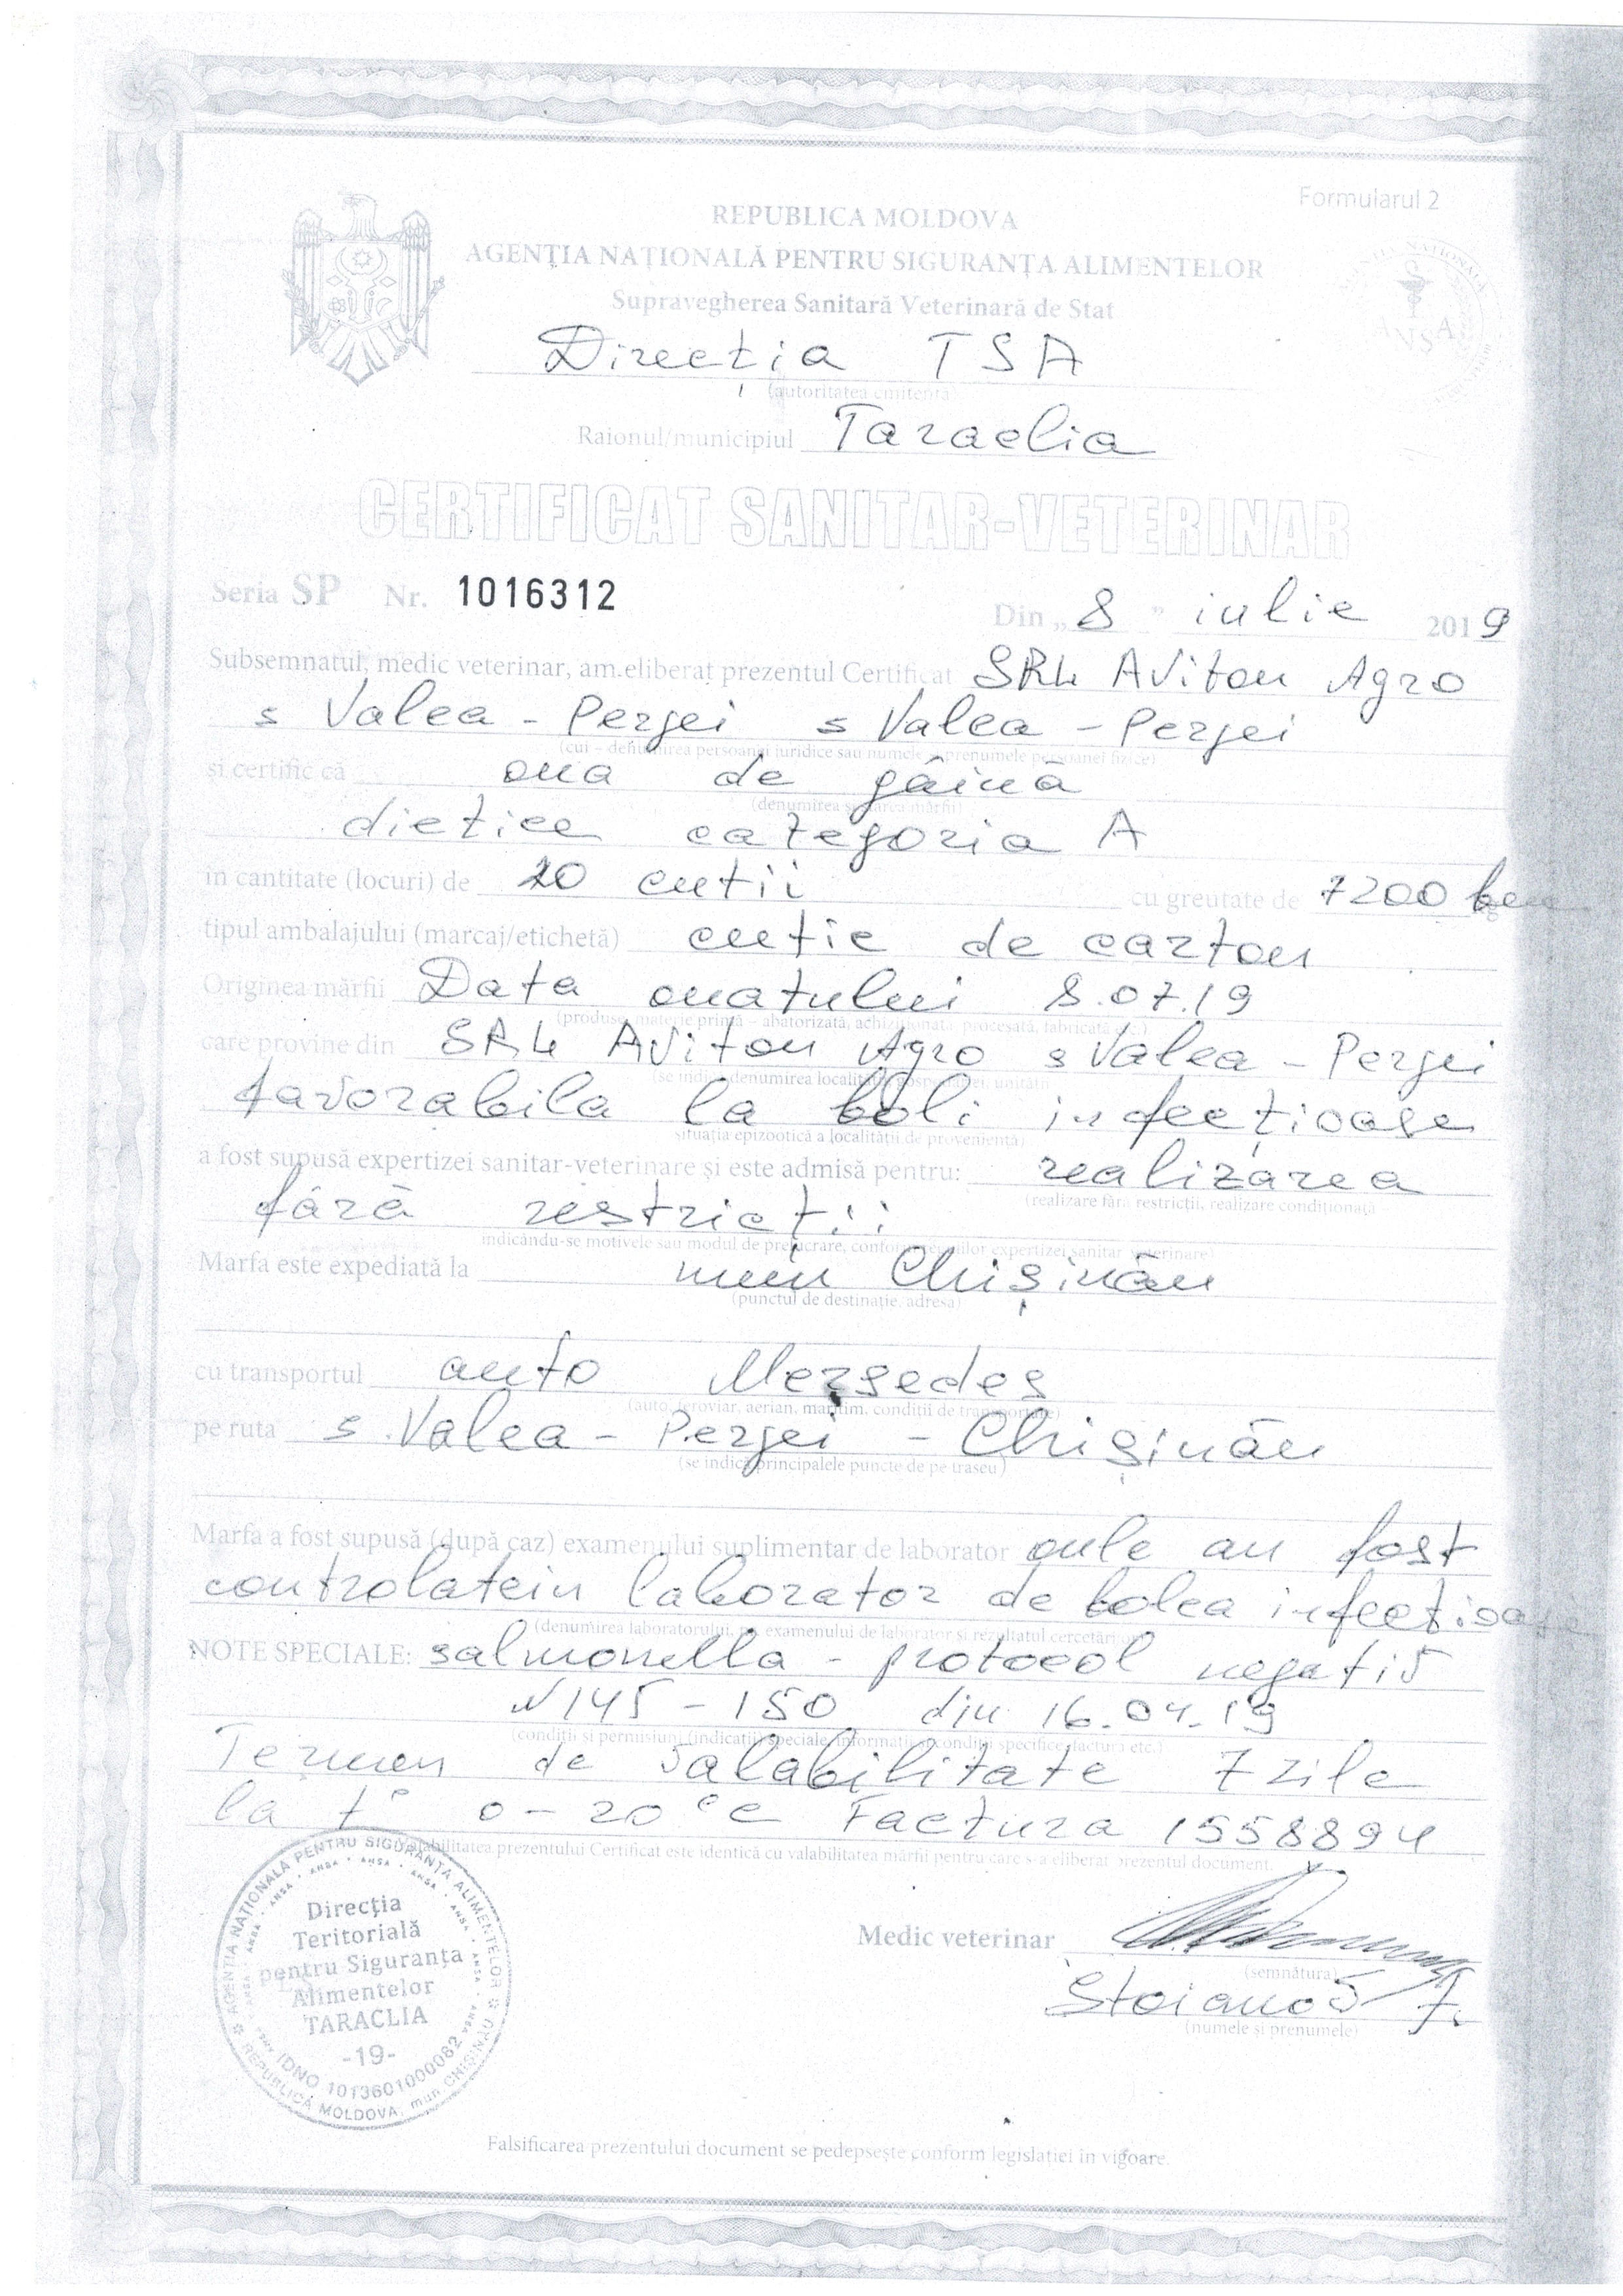 Formularul 2
REPUBLICA MOLDOVA
AGENȚIA NAȚIONALĂ PENTRU SIGURANȚA ALIMENTELOR
Supravegherea Sanitară Veterinară de Stat
Direcția TSA
(autoritatea emitentă)
Raionul/municipiul Taraclia
CERTIFICAT SANITAR-VETERINAR
Seria SP Nr. 1016312 Din „8” iulie 2019
Subsemnatul, medic veterinar, am eliberat prezentul Certificat SRL Aviton Agro
s Valea - Perjei s Valea - Perjei
(cui – denumirea persoanei juridice sau numele prenumele persoanei fizice)
și certific că oua de găina
(denumirea și marca mărfii)
dietice categoria A
în cantitate (locuri) de 20 cutii cu greutate de 7200 buc
tipul ambalajului (marcaj/etichetă) cutie de carton
Originea mărfii Data ouatului 8.07.19
(produse, materie primă – abatorizată, achiziționată, procesată, fabricată etc.)
care provine din SRL Aviton Agro s Valea - Perjei
(se indică denumirea localității, gospodăriei, unității)
favorabila la boli infecțioase
situația epizootică a localității de proveniență)
a fost supusă expertizei sanitar-veterinare și este admisă pentru: realizarea
(realizare fără restricții, realizare condiționată –
fără restricții
indicându-se motivele sau modul de prelucrare, conform expertizei sanitar veterinare)
Marfa este expediată la mun Chișinău
(punctul de destinație, adresa)
cu transportul auto Mersedes
(auto, feroviar, aerian, maritim, condiții de transportare)
pe ruta s. Valea - Perjei - Chișinău
(se indică principalele puncte de pe traseu)
Marfa a fost supusă (după caz) examenului suplimentar de laborator oule au fost
controlate in laborator de bolea infecțioase
(denumirea laboratorului, examenului de laborator și rezultatul cercetării)
NOTE SPECIALE: salmonella - protocol negativ
N 145 - 150 din 16.04.19
(condiții și permisiuni (indicații) speciale, informații și condiții specifice, factura etc.)
Termen de valabilitate 7 zile
la t° 0 - 20 °C Factura 1558894
Valabilitatea prezentului Certificat este identică cu valabilitatea mărfii pentru care s-a eliberat prezentul document.
Medic veterinar
(semnătura)
Stoianov
(numele și prenumele)
AGENȚIA NAȚIONALĂ PENTRU SIGURANȚA ALIMENTELOR
Direcția
Teritorială
pentru Siguranța
Alimentelor
TARACLIA
-19-
IDNO 1013601000082
REPUBLICA MOLDOVA, mun. CHIȘINĂU
Falsificarea prezentului document se pedepsește conform legislației în vigoare.